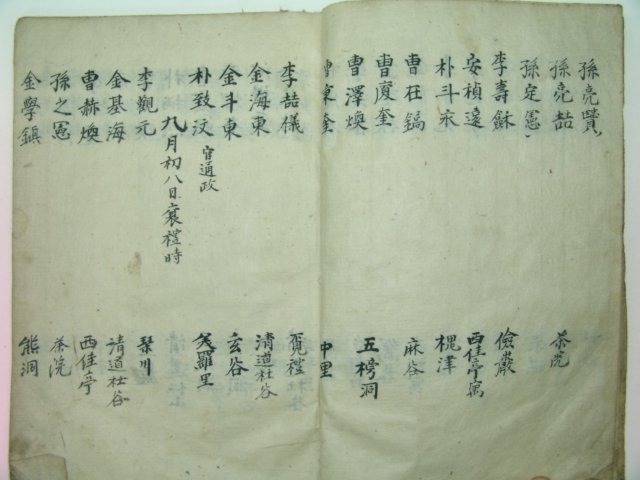 孫亮贊
孫亮喆 茶院
孫定憲
李壽龢 儉巖
安禎遠 西佳亭寓
朴斗永 槐津
曺在鎬 麻谷
曺夏奎 五榜洞
曺澤煥
曺秉奎 中里
李喆儀
金海東 淸道杜谷
金斗東 玄谷
朴致汶 官通政 美羅里
九月初八日襄禮時
李觀元 琴川
金基海 淸道杜谷
曺赫煥 西佳亭
孫之憲 茶院
金學鎭 熊洞